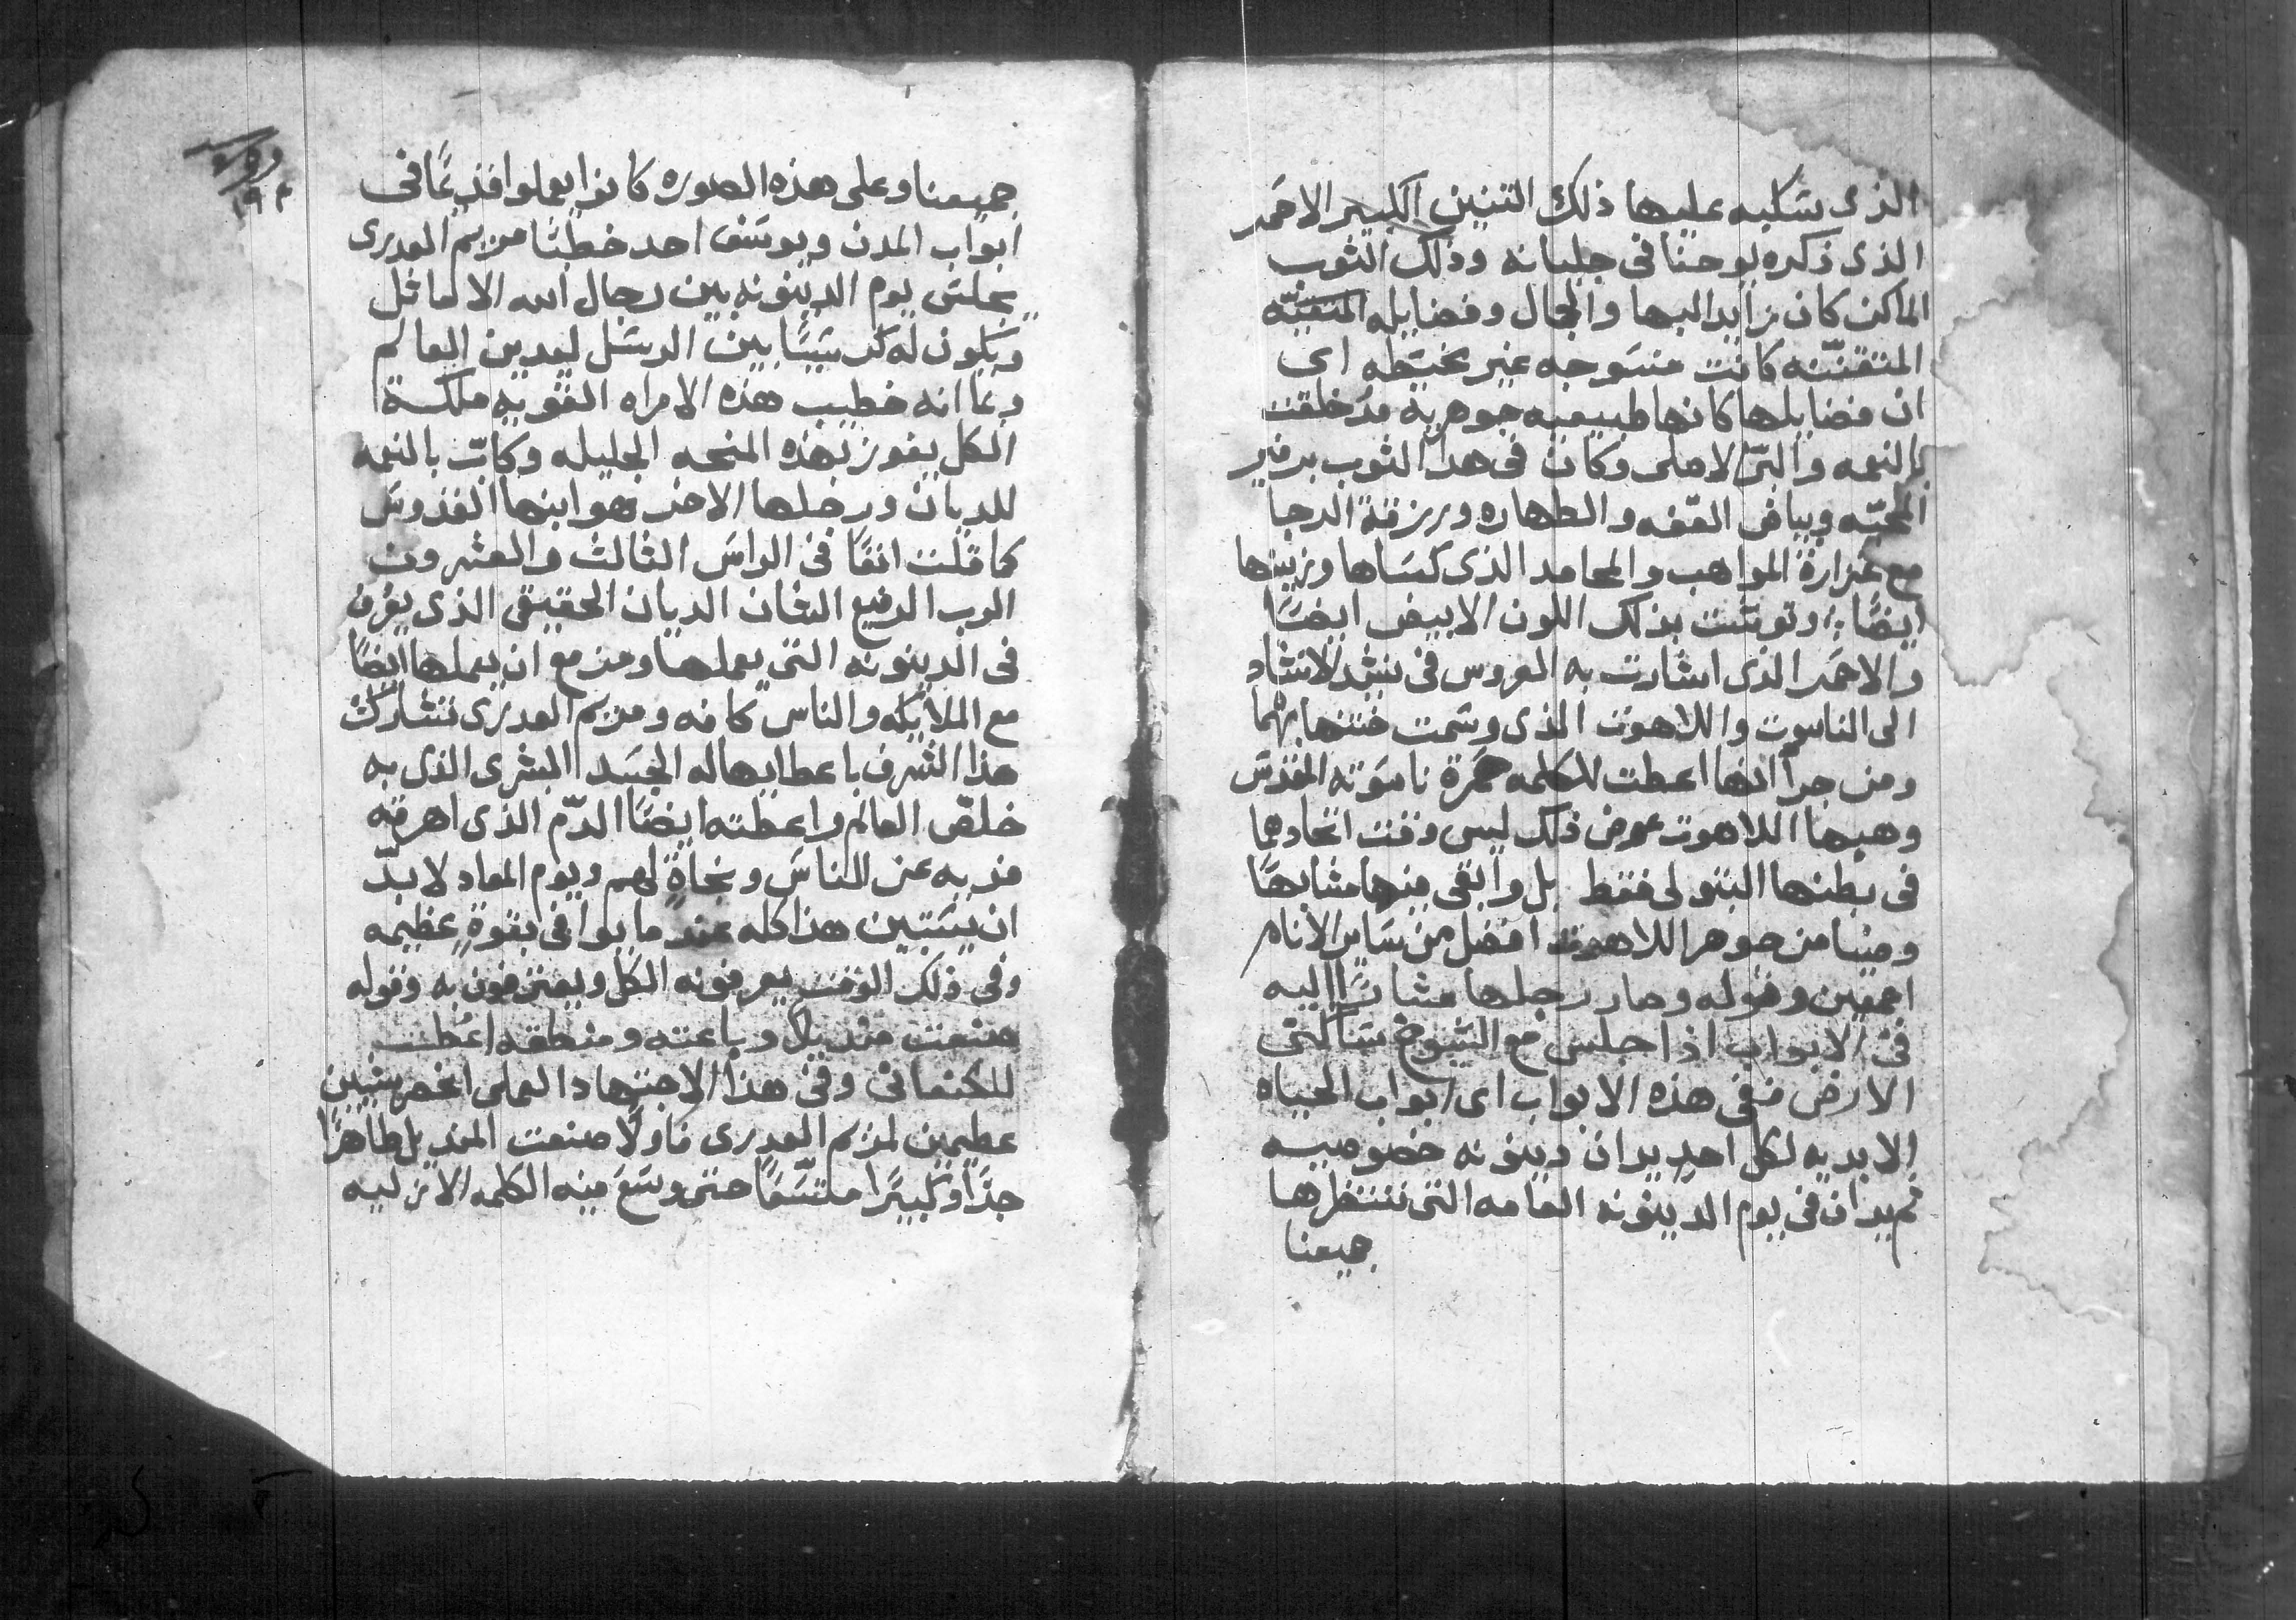 الذى سكبه عليها ذلك التنين الكبير الاحمر
الذى ذكره يوحنا فى جليانه وذلك الثوب
الماكن كان زايد البها والجمال وفضايله المتقنه
المتقنّنه كانت منسوجه غير مخيّطه اى
ان فضايلها كانها طبيعيه جوهريه مذ خلقت
بالنعمه والبرّ الاصلى وكان فى هذا الثوب برفير
المحبّه وبياض العفّه والطهاره وزرقة الرجا
مع غزارة المواهب والمحامد الذى كساها وزينها
ايضًا وتوشت بذلك اللون الابيض ايضًا
والاحمر الذى اشارت به العروس فى نشد الانشاد
الى الناسوت واللاهوت الذى وسمت ختنها بهما
ومن جرآ انها اعطت للكلمه حمرة ناسوته المقدس
وهبها اللاهوت عوض ذلك ليس وقت اتحادهما
فى بطنها البتولى فقط بل وابقى منها مشابهًا
وضيا من جوهر اللاهوت افضل من ساير الانام
اجمعين وقوله وصار رجلها مشارًا اليه
فى الابواب اذا جلس مع الشيوخ ساكنى
الارض ففى هذه الابواب اى ابواب الحياه
الابديه لكل احدٍ يدان دينونه خصوصيه
ثم يدان فى يوم الدينونه العامه التى ننتظرها
جميعنا
١٩٣
جميعنا وعلى هذه الصوره كانوا يعملوا قديمًا فى
ابواب المدن ويوسف احد خطبا مريم العدرى
يجلس يوم الدينونه بين رجال الله الاماثل
ويكون له كرسيًّا بين الرسل ليدين العالم
وبما انه خطيب هذه الامراه القويه ملكة
الكل يفوز بهذه المنحه الجليله وكانّ بالنعمه
للديان ورجلها الاخر هو ابنها القدوس
كما قلت انفًا فى الراس الثالث والعشرون
الرب الرفيع الشان الديان الحقيقى الذى يعرف
فى الدينونه التى يعملها ومزمع ان يعملها ايضًا
مع الملايكه والناس كافه ومريم العدرى تتشارك
هذا الشرف باعطايها له الجسد البشرى الذى به
خلّص العالم واعطته ايضًا الدّم الذى اهرقه
فديه عن الناس ونجاةٍ لهم ويوم المعاد لا بدّ
ان يستبين هذا كله عند ما يوافى بقوةٍ عظيمه
وفى ذلك الوقت يعرفونه الكل ويعترفون به وقوله
صنعت منديلاً وباعته ومنطقه اعطت
للكنعانى وفى هذا الاجتهاد العملى انحصر شيين
عظيمين لمريم العدرى فاولاً صنعت المنديل طاهرًا
جدًا وكبيرًا متسّعًا حتى وسَعَ فيه الكلمه الازليه